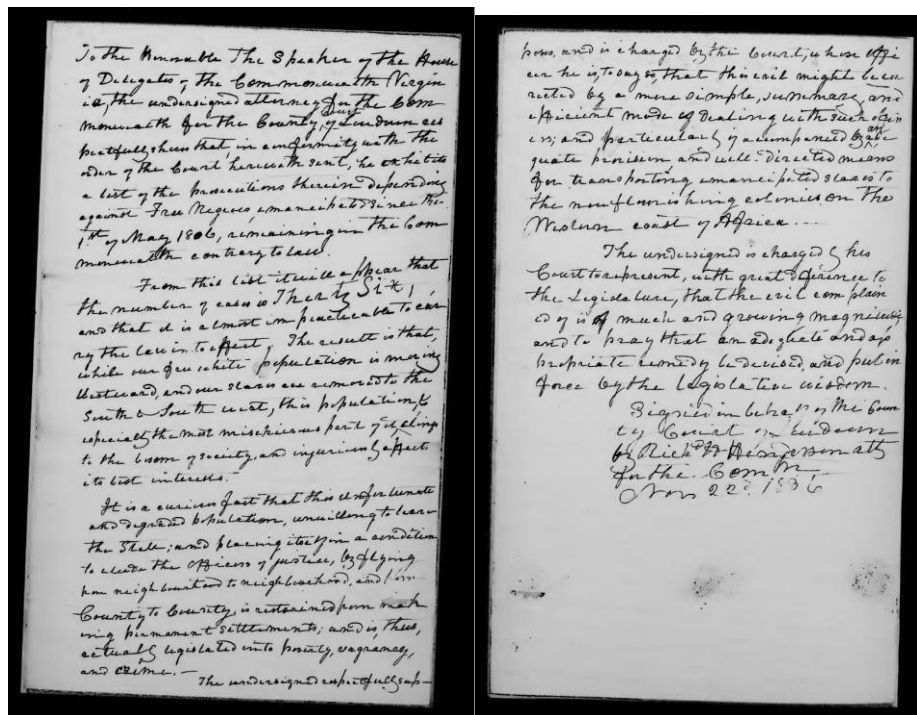 To the Honorable The Speaker of the House
of Delegates of the Commonwealth Virgin
ia, the undersigned attorney for the Com
monwealth for the County Court of Loudoun res
pectfully shews that in conformity with the
order of the Court herewith sent, he exhibits
a list of the prosecutions therein depending
against Free Negroes, emancipated since the
1st of May 1806, remaining in the Com
monwealth contrary to law.
From this list it will appear that
the number of cases is Thirty Six,
and that it is almost impracticable to car
ry the law into effect. The result is that,
while our free white population is moving
Westward, and our slaves are removed to the
South & South west, this population, &
especially the most mischievous part of it, clings
to the bosom of society, and injuriously affects
its best interests.
It is a curious fact that this unfortunate
and degraded population, unwilling to leave
the State; and placing itself in a condition
to elude the officers of justice, by flying
from neighbourhood to neighbourhood, and from
County to County, is restrained from mak
ing permanent settlements; and is, thus,
actually legislated into poverty, vagrancy,
and crime. —
The undersigned respectfully sup—
poses, and is charged by the Court, whose offi
cer he is, to say so, that this evil might be cor
rected by a more simple, summary and
efficient mode of dealing with such
and particularly if accompanied by an ade
quate provision and well-directed means
for transporting emancipated slaves to
the now flourishing colonies on the
Western coast of Africa. ...
The undersigned is charged by his
Court to represent, with great deference to
the Legislature, that the evil complain
ed of is of much and growing magnitude;
and to pray that an adequate and ap
propriate remedy be devised, and put in
force by the legislative wisdom.
Signed in behalf of the Coun
ty Court of Loudoun
by Richd H Henderson atty
for the Comm
Nov 22d. 1836